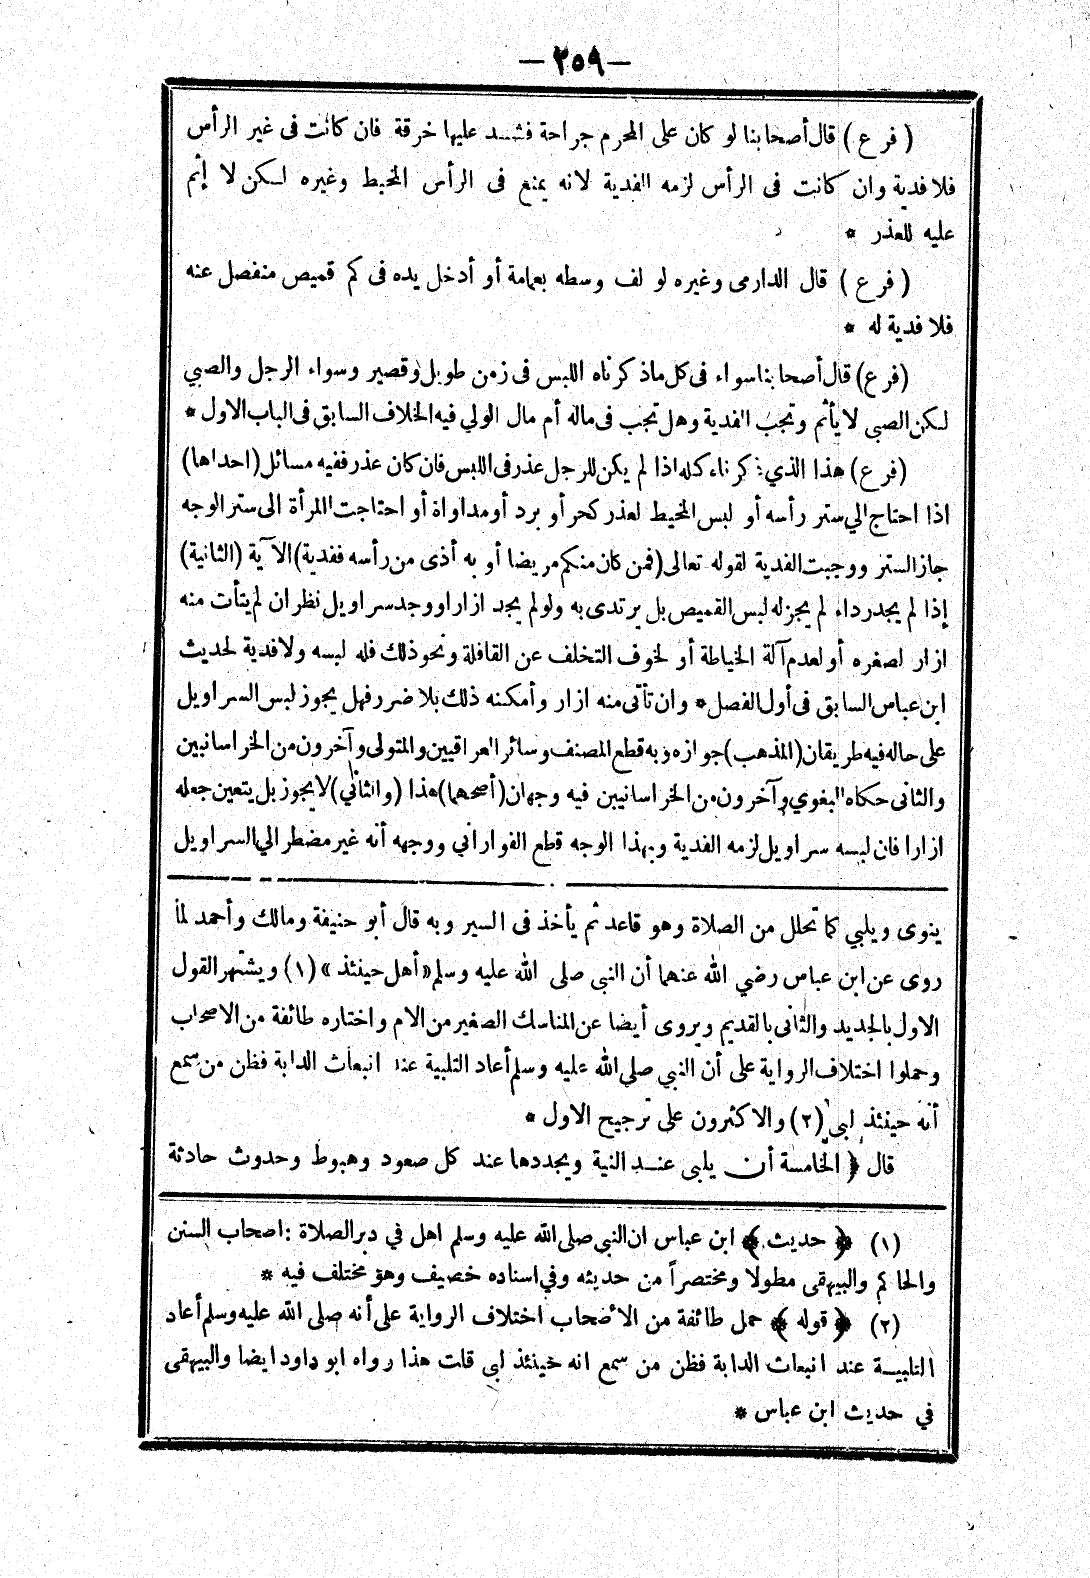 — ٢٥٩ —
( فرع ) قال أصحابنا لو كان على المحرم جراحة فشد عليها خرقة فان كانت فى غير الرأس
فلا فدية وان كانت فى الرأس لزمه الفدية لانه يمنع فى الرأس المخيط وغيره لكن لا إثم
عليه للعذر *
( فرع ) قال الدارمى وغيره لو لف وسطه بعمامة أو أدخل يده فى كم قميص منفصل عنه
فلا فدية له *
(فرع) قال أصحابنا سواء فى كل ماذكرناه اللبس فى زمن طويل وقصير وسواء الرجل والصبي
لكن الصبى لا يأثم وتجب الفدية وهل تجب فى ماله أم مال الولي فيه الخلاف السابق فى الباب الاول *
(فرع) هذا الذي ذكرناه كله اذا لم يكن للرجل عذر فى اللبس فان كان عذر ففيه مسائل (احداها)
اذا احتاج الي ستر رأسه أو لبس المخيط لعذر كحر أو برد أو مداواة أو احتاجت المرأة الى ستر الوجه
جاز الستر ووجبت الفدية لقوله تعالى (فمن كان منكم مريضا أو به أذى من رأسه ففدية) الآية (الثانية)
إذا لم يجد رداء لم يجز له لبس القميص بل يرتدى به ولو لم يجد ازارا ووجد سراويل نظر ان لم يتأت منه
ازار لصغره أو لعدم آلة الخياطة أو لخوف التخلف عن القافلة ونحو ذلك فله لبسه ولا فدية لحديث
ابن عباس السابق فى أول الفصل * وان تأتى منه ازار وأمكنه ذلك بلا ضرر فهل يجوز لبس السراويل
على حاله فيه طريقان (المذهب) جوازه وبه قطع المصنف وسائر العراقيين والمتولى وآخرون من الخراسانيين
والثانى حكاه البغوي وآخرون من الخراسانيين فيه وجهان (أصحهما) هذا (والثاني) لا يجوز بل يتعين جعله
ازارا فان لبسه سراويل لزمه الفدية وبهذا الوجه قطع الفوراني ووجهه أنه غير مضطر الي السراويل
ينوى ويلبي كما تحلل من الصلاة وهو قاعد ثم يأخذ فى السير وبه قال أبو حنيفة ومالك وأحمد لما
روى عن ابن عباس رضي الله عنهما أن النبى صلى الله عليه وسلم «أهل حينئذ» (١) ويشتهر القول
الاول بالجديد والثانى بالقديم ويروى أيضا عن المناسك الصغير من الام واختاره طائفة من الاصحاب
وحملوا اختلاف الرواية على أن النبي صلي الله عليه وسلم أعاد التلبية عند انبعاث الدابة فظن من سمع
أنه حينئذ لبى (٢) والاكثرون على ترجيح الاول *
قال ﴿ الخامسة أن يلبى عند النية ويجددها عند كل صعود وهبوط وحدوث حادثة
(١) ﴿ حديث ﴾ ابن عباس ان النبى صلى الله عليه وسلم اهل في دبر الصلاة : اصحاب السنن
والحاكم والبيهقى مطولا ومختصراً من حديثه وفي اسناده خصيف وهو مختلف فيه *
(٢) ﴿ قوله ﴾ حمل طائفة من الاصحاب اختلاف الرواية على أنه صلى الله عليه وسلم أعاد
التلبية عند انبعاث الدابة فظن من سمع انه حينئذ لبى قلت هذا رواه ابو داود ايضا والبيهقى
في حديث ابن عباس *